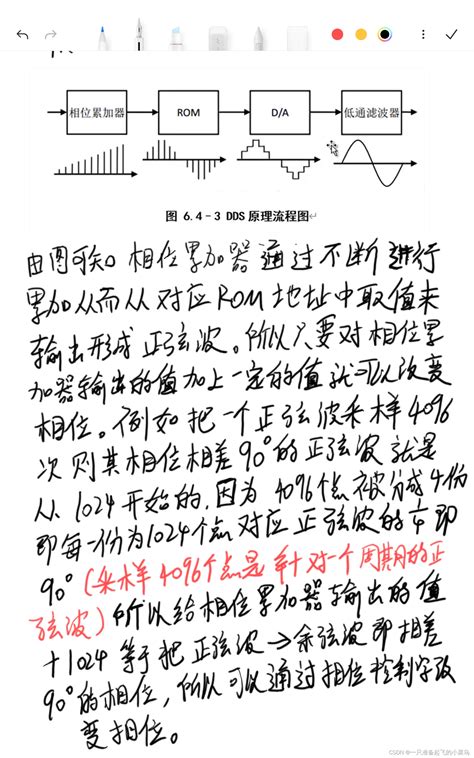 相位累加器 ROM D/A 低通滤波器
图 6.4-3 DDS 原理流程图
由图可知 相位累加器通过不断进行
累加从而从对应ROM地址中取值来
输出形成正弦波。所以只要对相位累
加器输出的值加上一定的值就可以改变
相位。例如把一个正弦波采样4096
次则其相位相差90°的正弦波就是
从1024开始的,因为4096个点被分成4份
即每一份为1024个点对应正弦波的 即
90°(采样4096个点是针对一个周期的正
弦波)所以给相位累加器输出的值
+1024等于把正弦波→余弦波即相差
90°的相位,所以可以通过相位控制字改
变相位。
CSDN @一只准备起飞的小菜鸟